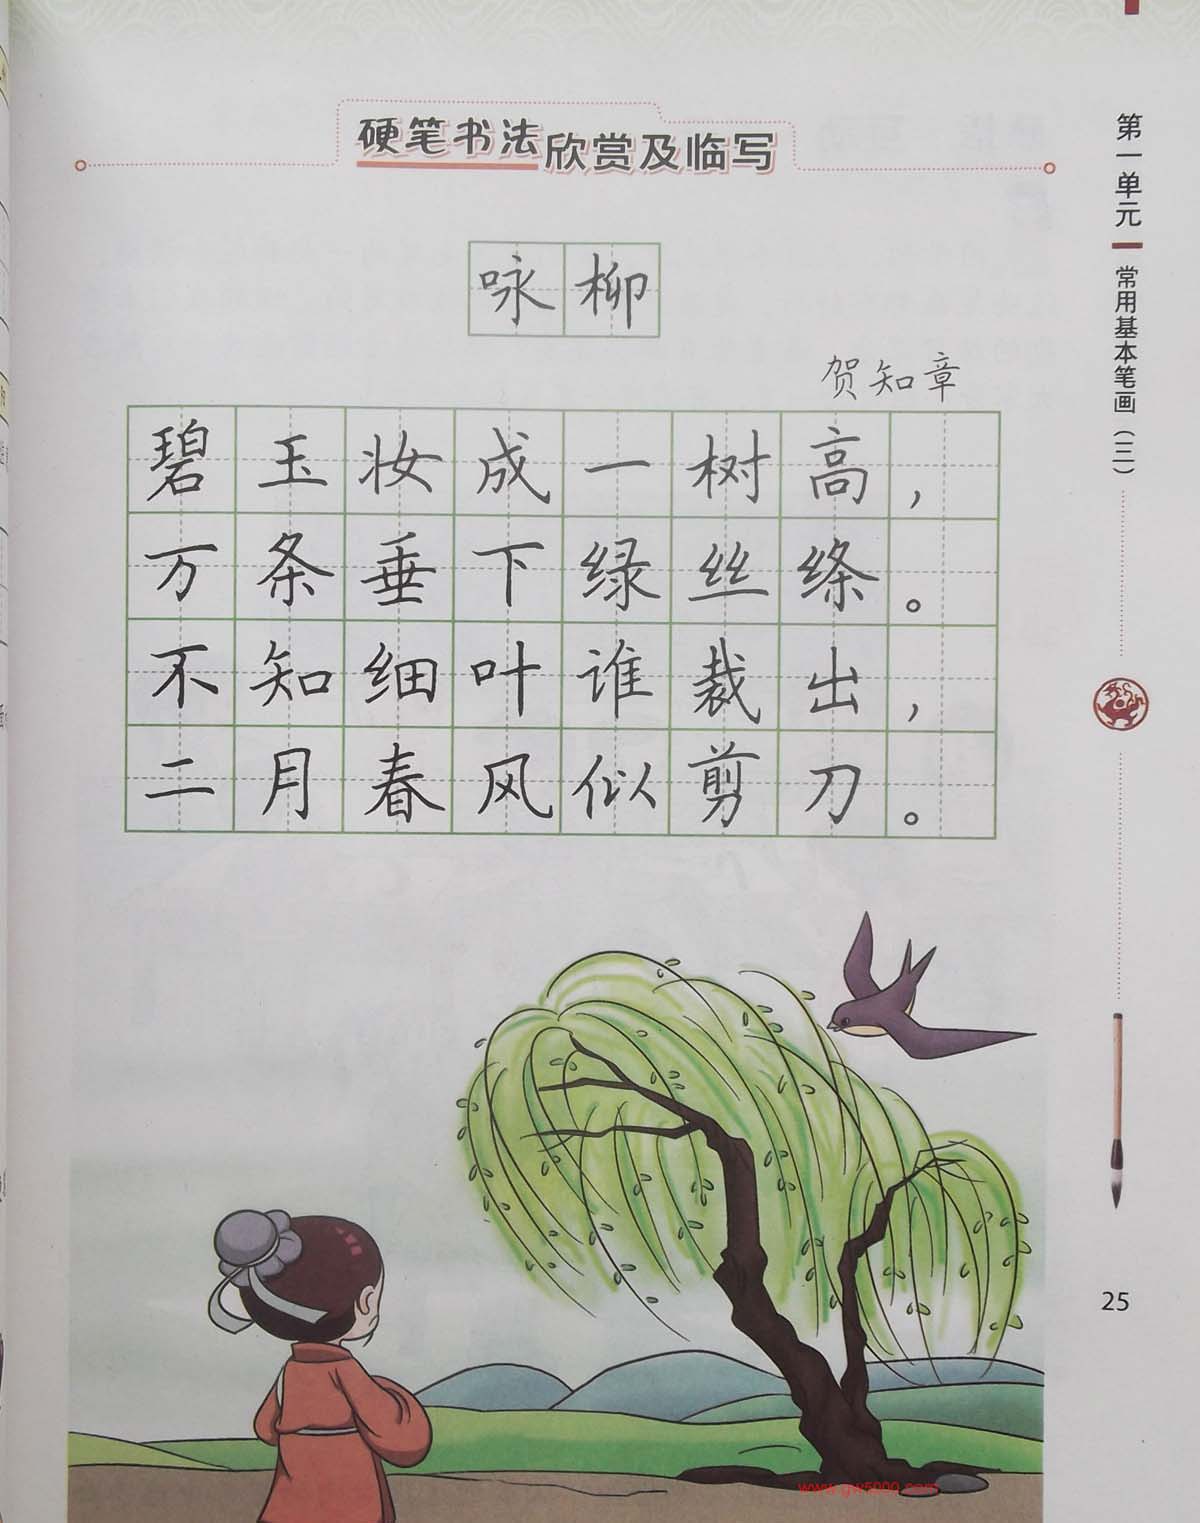 硬笔书法欣赏及临写
咏柳
贺知章
碧玉妆成一树高，
万条垂下绿丝绦。
不知细叶谁裁出，
二月春风似剪刀。
第一单元
常用基本笔画（三）
25
www.gw5000.com